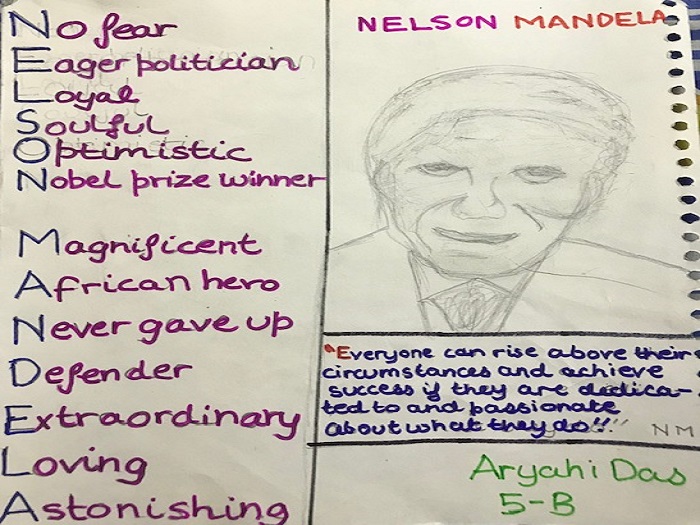 No fear
Eager politician
Loyal
Soulful
Optimistic
Nobel prize winner
Magnificent
African hero
Never gave up
Defender
Extraordinary
Loving
Astonishing
NELSON MANDELA
"Everyone can rise above their
circumstances and achieve
success if they are dedica-
ted to and passionate
about what they do!!"
NM
Aryahi Das
5-B